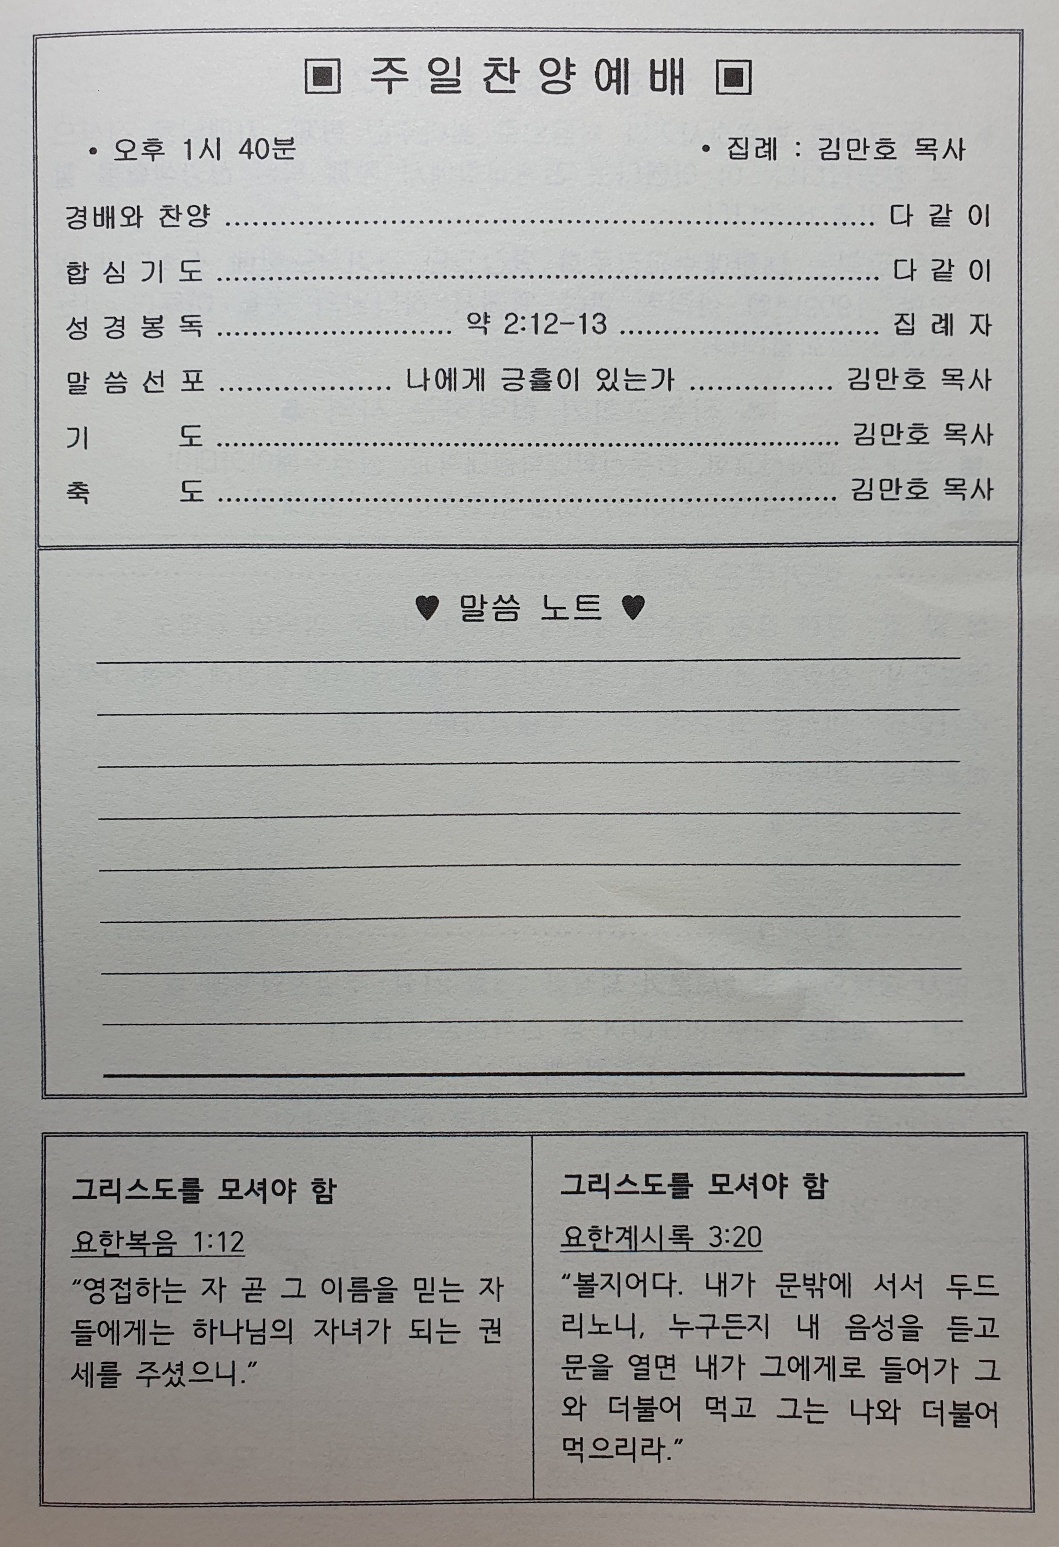 ▣ 주일찬양예배 ▣
• 오후 1시 40분 • 집례 : 김만호 목사
경배와 찬양 ........ 다 같 이
합 심 기 도 ........ 다 같 이
성 경 봉 독 ........ 약 2:12-13 ........ 집 례 자
말 씀 선 포 ........ 나에게 긍휼이 있는가 ........ 김만호 목사
기 도 ........ 김만호 목사
축 도 ........ 김만호 목사
♥ 말씀 노트 ♥
그리스도를 모셔야 함
요한복음 1:12
“영접하는 자 곧 그 이름을 믿는 자
들에게는 하나님의 자녀가 되는 권
세를 주셨으니.”
그리스도를 모셔야 함
요한계시록 3:20
“볼지어다. 내가 문밖에 서서 두드
리노니, 누구든지 내 음성을 듣고
문을 열면 내가 그에게로 들어가 그
와 더불어 먹고 그는 나와 더불어
먹으리라.”